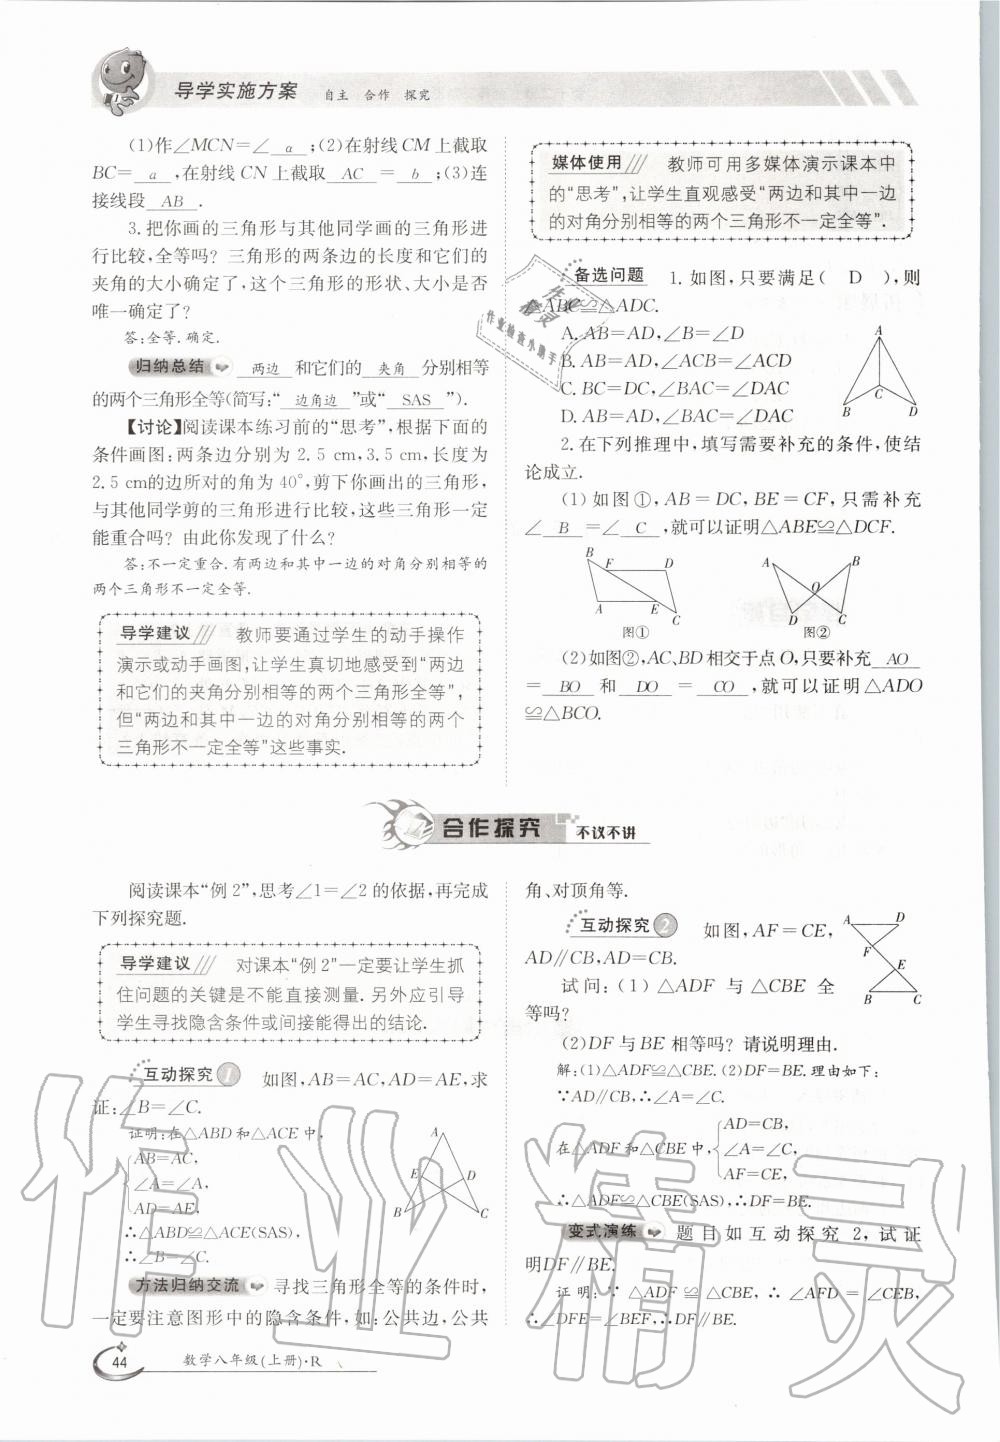 导学实施方案 自主 合作 探究
(1)作∠MCN=∠ α ;(2)在射线CM上截取
BC= a ,在射线CN上截取 AC = b ;(3)连
接线段 AB .
3.把你画的三角形与其他同学画的三角形进
行比较,全等吗? 三角形的两条边的长度和它们的
夹角的大小确定了,这个三角形的形状、大小是否
唯一确定了?
答:全等.确定.
归纳总结 两边 和它们的 夹角 分别相等
的两个三角形全等(简写:“ 边角边 ”或“ SAS ”).
【讨论】阅读课本练习前的“思考”,根据下面的
条件画图:两条边分别为2.5 cm,3.5 cm,长度为
2.5 cm的边所对的角为40°,剪下你画出的三角形,
与其他同学剪的三角形进行比较,这些三角形一定
能重合吗? 由此你发现了什么?
答:不一定重合.有两边和其中一边的对角分别相等的
两个三角形不一定全等.
导学建议 教师要通过学生的动手操作
演示或动手画图,让学生真切地感受到“两边
和它们的夹角分别相等的两个三角形全等”,
但“两边和其中一边的对角分别相等的两个
三角形不一定全等”这些事实.
媒体使用 教师可用多媒体演示课本中
的“思考”,让学生直观感受“两边和其中一边
的对角分别相等的两个三角形不一定全等”.
备选问题 1.如图,只要满足( D ),则
△ABC≌△ADC.
A. AB=AD,∠B=∠D
B. AB=AD,∠ACB=∠ACD
C. BC=DC,∠BAC=∠DAC
D. AB=AD,∠BAC=∠DAC
A
B
C
D
2.在下列推理中,填写需要补充的条件,使结
论成立.
(1)如图①,AB=DC,BE=CF,只需补充
∠ B =∠ C ,就可以证明△ABE≌△DCF.
B
F
D
A
E
C
图①
A
B
O
D
C
图②
(2)如图②,AC、BD相交于点O,只要补充 AO
= BO 和 DO = CO ,就可以证明△ADO
≌△BCO.
合作探究 不议不讲
阅读课本“例2”,思考∠1=∠2的依据,再完成
下列探究题.
导学建议 对课本“例2”一定要让学生抓
住问题的关键是不能直接测量.另外应引导
学生寻找隐含条件或间接能得出的结论.
互动探究 1 如图,AB=AC,AD=AE,求
证:∠B=∠C.
证明:在△ABD和△ACE中,
AB=AC,
∠A=∠A,
AD=AE,
∴△ABD≌△ACE(SAS),
∴∠B=∠C.
A
E
D
B
C
方法归纳交流 寻找三角形全等的条件时,
一定要注意图形中的隐含条件,如:公共边,公共
角、对顶角等.
互动探究 2 如图,AF=CE,
AD∥CB,AD=CB.
试问:(1)△ADF与△CBE全
等吗?
A
D
F
E
B
C
(2)DF与BE相等吗? 请说明理由.
解:(1)△ADF≌△CBE.(2)DF=BE.理由如下:
∵AD∥CB,∴∠A=∠C.
AD=CB,
在△ADF和△CBE中, ∠A=∠C,
AF=CE,
∴△ADF≌△CBE(SAS),∴DF=BE.
变式演练 题目如互动探究2,试证
明DF∥BE.
证明:∵△ADF≌△CBE,∴∠AFD=∠CEB,
∴∠DFE=∠BEF,∴DF∥BE.
44 数学八年级(上册)·R
作业精灵
作业检查小助手
作业精灵